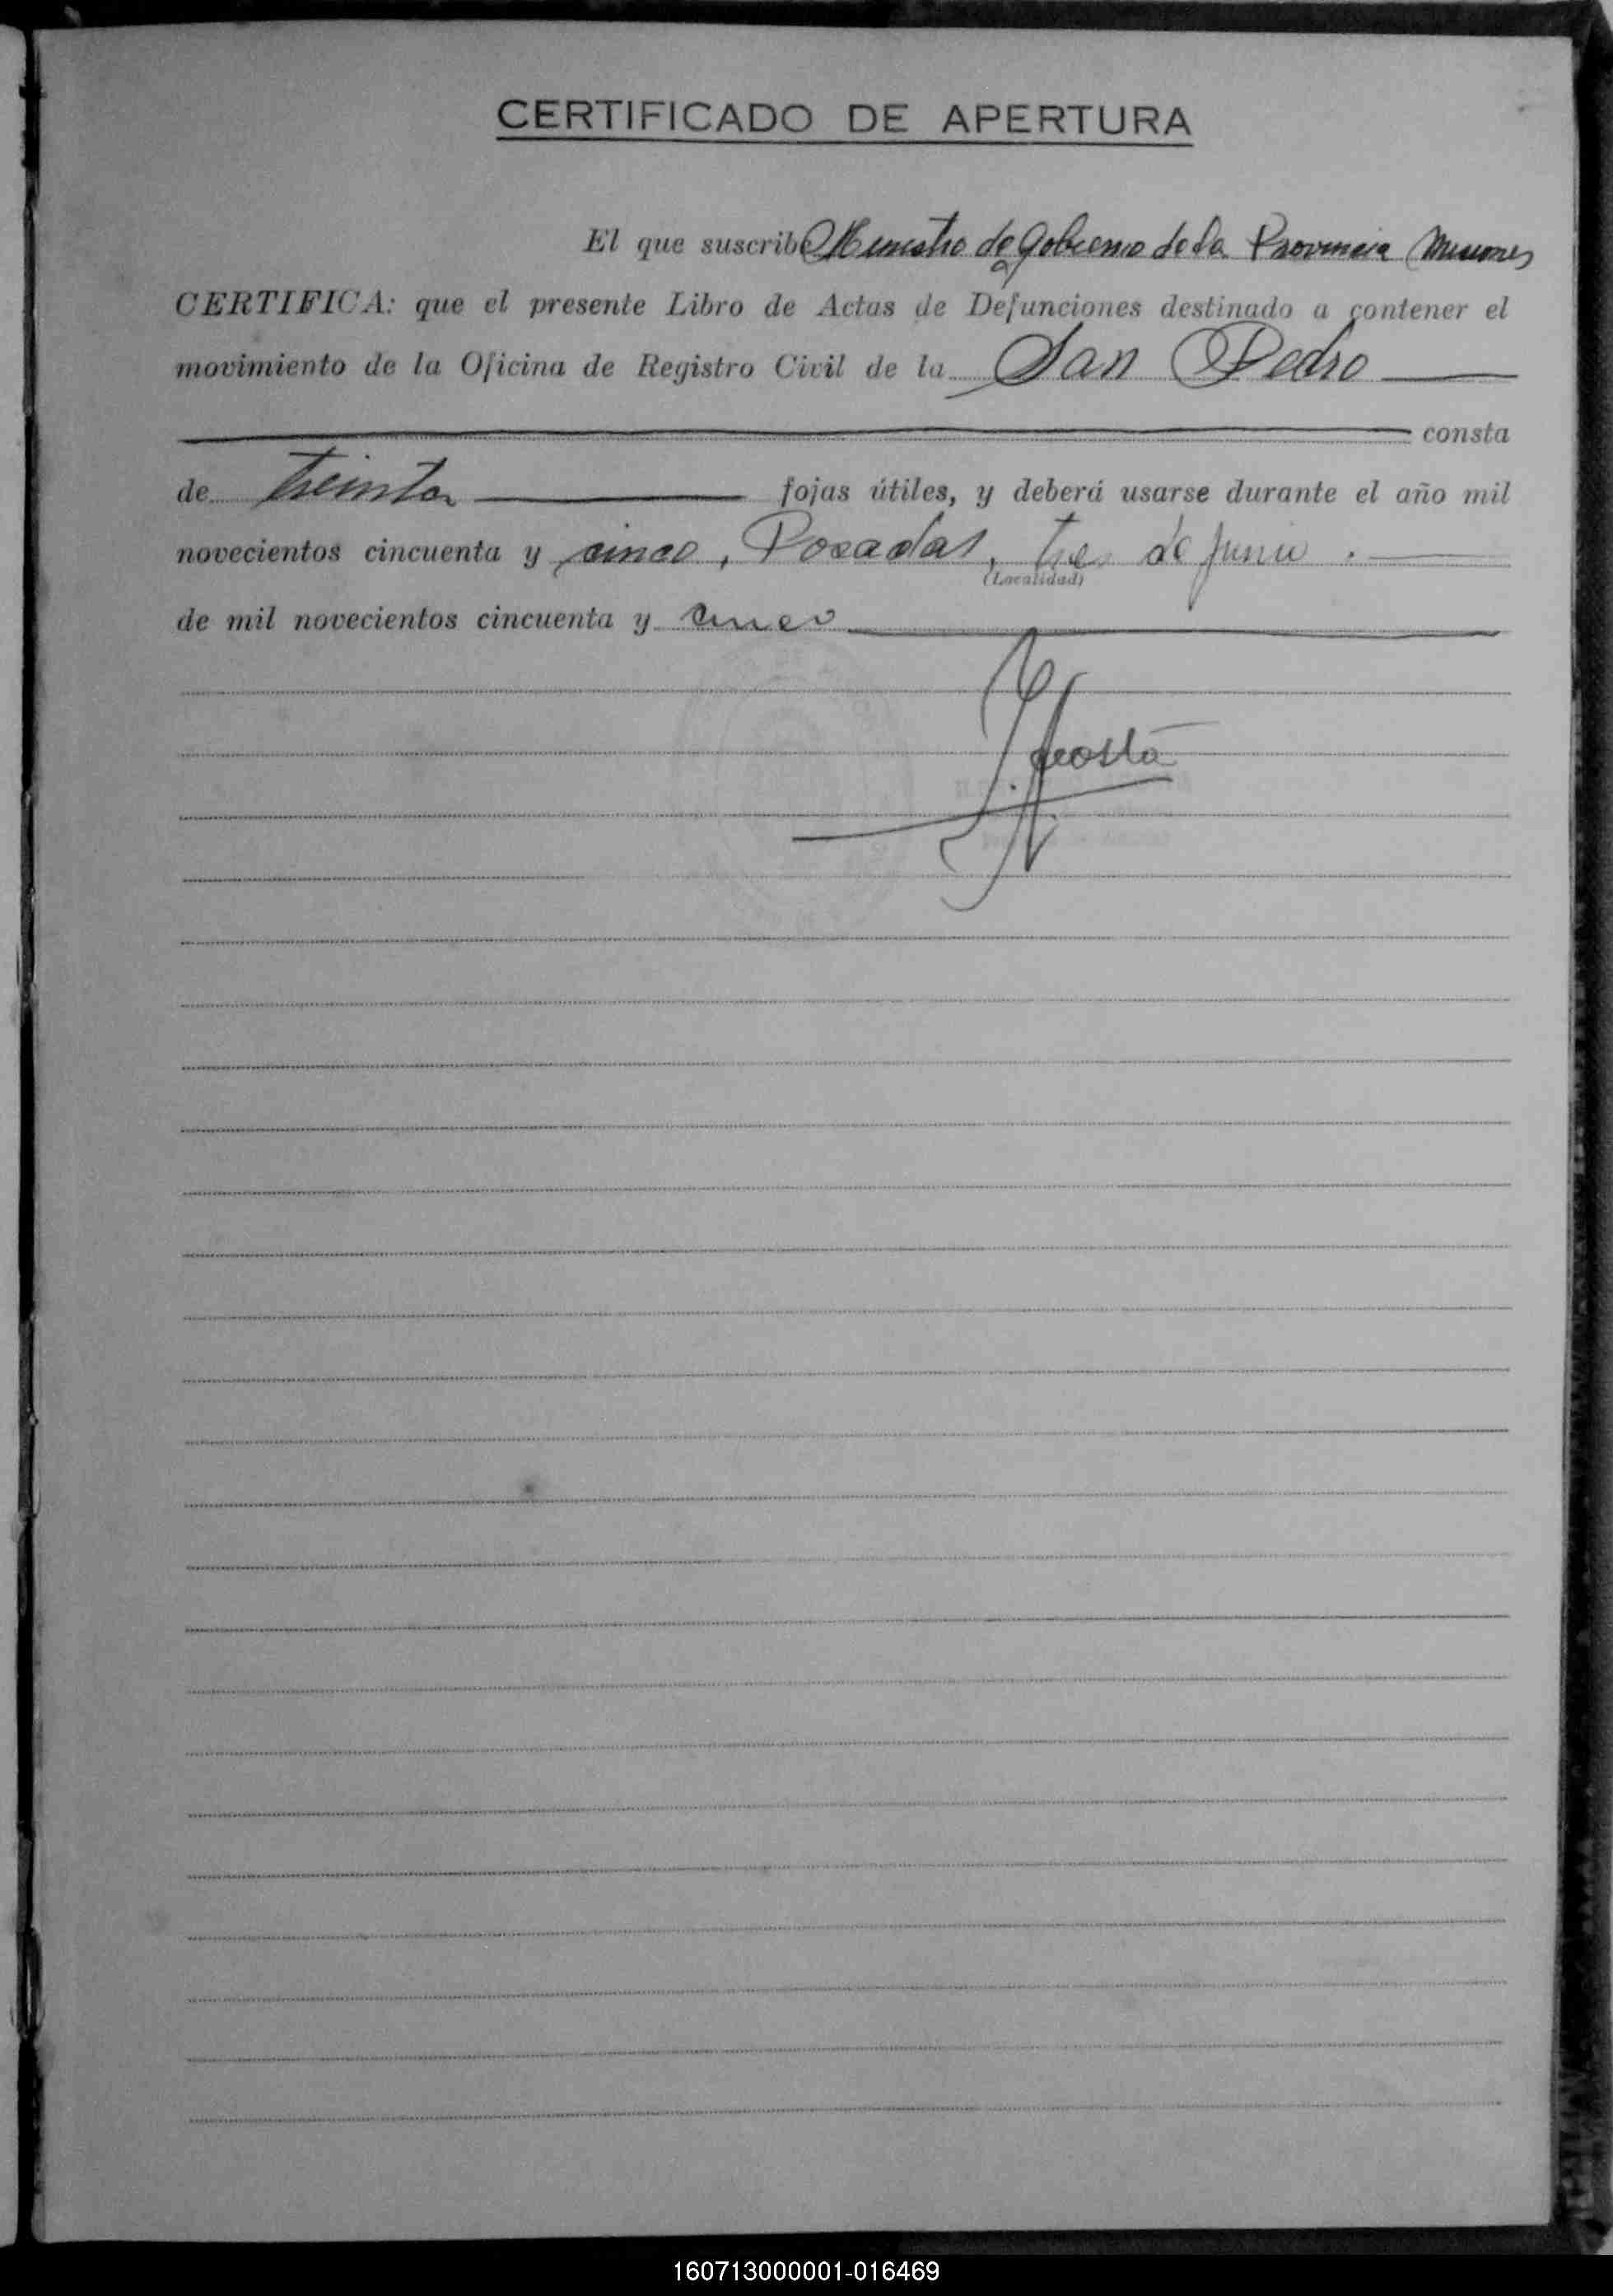 CERTIFICADO DE APERTURA
El que suscribe Ministro de Gobierno de la Provincia Misiones
CERTIFICA: que el presente Libro de Actas de Defunciones destinado a contener el
movimiento de la Oficina de Registro Civil de la San Pedro
consta
de treinta fojas útiles, y deberá usarse durante el año mil
novecientos cincuenta y cinco, Posadas, tres de Junio.
(Localidad)
de mil novecientos cincuenta y cinco
Acosta
160713000001-016469